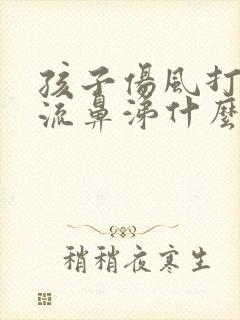 孩子傷風打
流鼻涕什麼
稍稍夜寒生